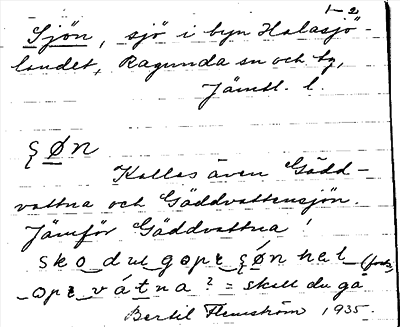 1-2
Sjön, sjö i byn Halasjö-
landet, Ragunda sn och tg,
Jämtl. l.
ʂøn
Kallas även Gädd-
vattna och Gäddvattensjön.
Jämför Gäddvattna!
sko dʉ gopɛ ʂøn hal
opɛ vátna? = skall du gå
Bertil Flemström 1935.